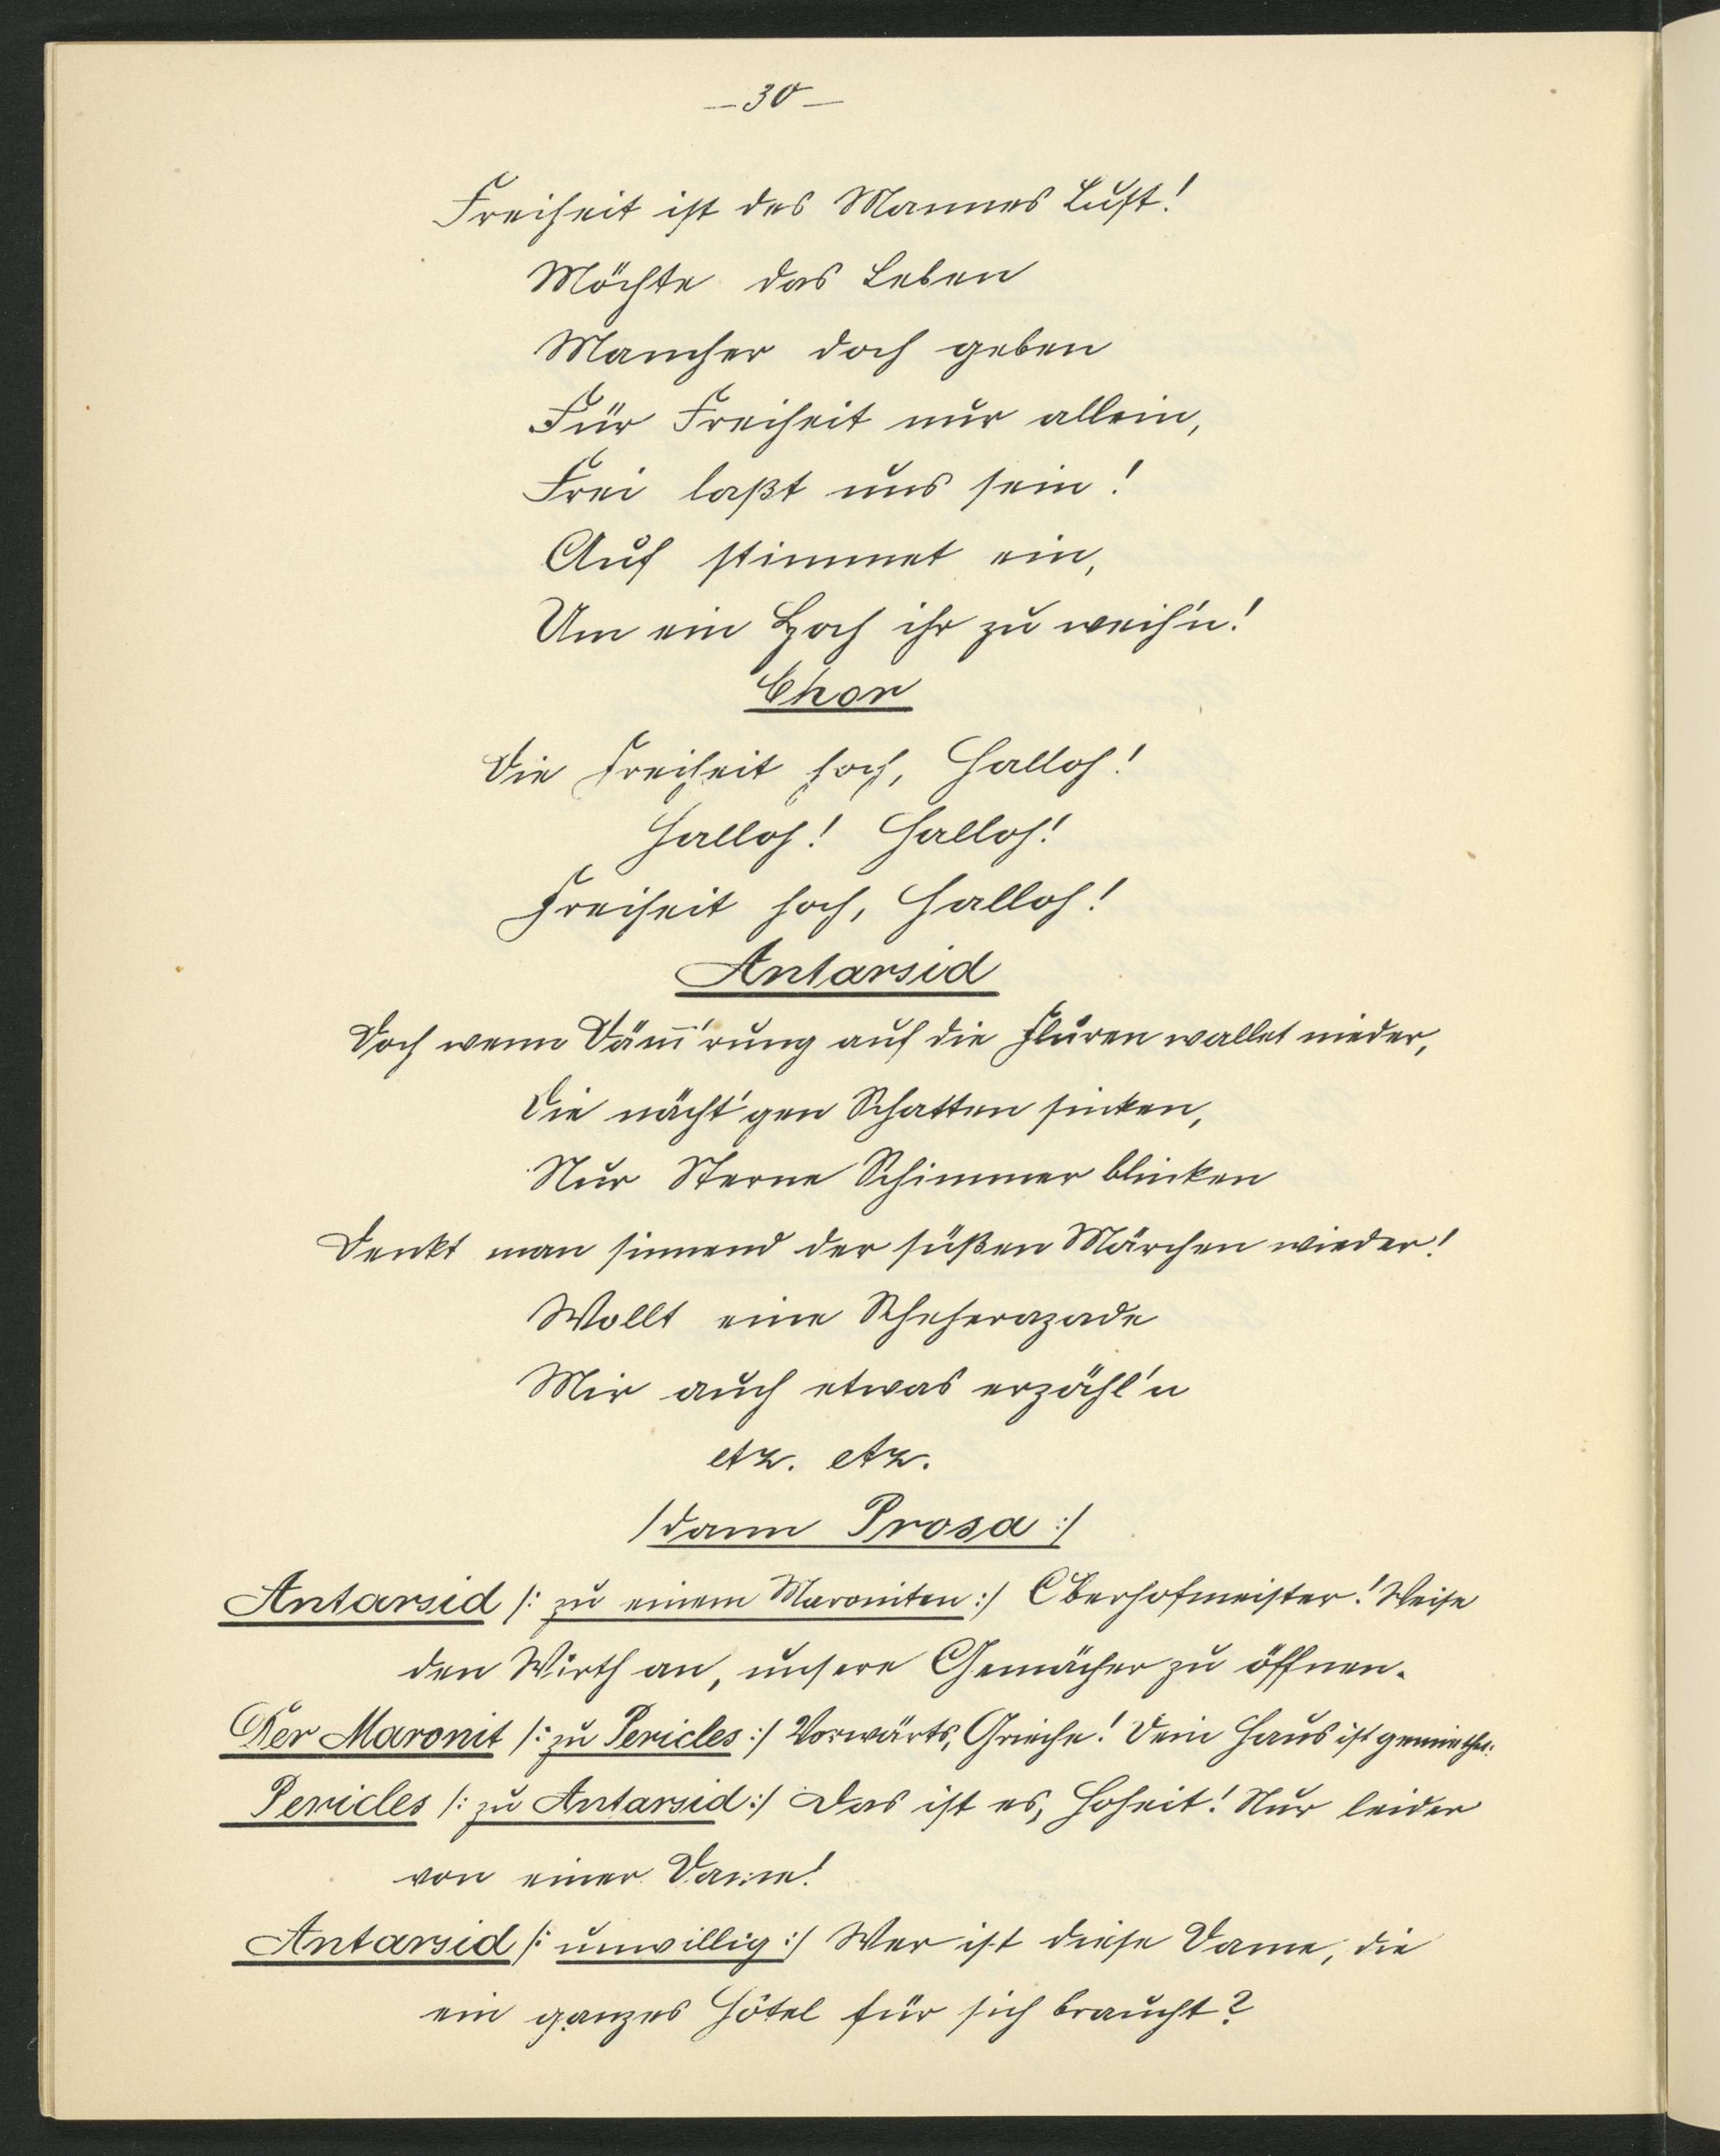 — 30 —
Freiheit ist des Mannes Lust!
Möchte das Leben
Mancher doch geben
Für Freiheit nur allein,
Frei laßt uns sein!
Auf stimmet ein,
Um ein Hoch ihr zu weih'n!
Chor
Die Freiheit hoch, Halloh!
Halloh! Halloh!
Freiheit hoch, Halloh!
Antarsid
Doch wenn Däm̅'rung auf die Fluren wallet nieder,
Die nächt'gen Schatten sinken,
Nur Sterne Schimmer blinken
Denkt man sinnend der süßen Märchen wieder!
Wollt eine Scheherazade
Mir auch etwas erzähl'n
etz. etz.
/dann Prosa :/
Antarsid /: zu einem Maroniten :/ Oberhofmeister! Weise
den Wirth an, unsere Gemächer zu öffnen.
Der Maronit /: zu Pericles :/ Vorwärts, Grieche! Dein Haus ist gemiethet.
Pericles /: zu Antarsid :/ Das ist es, Hoheit! Nur leider
von einer Dame!
Antarsid /: unwillig :/ Wer ist diese Dame, die
ein ganzes Hôtel für sich braucht?